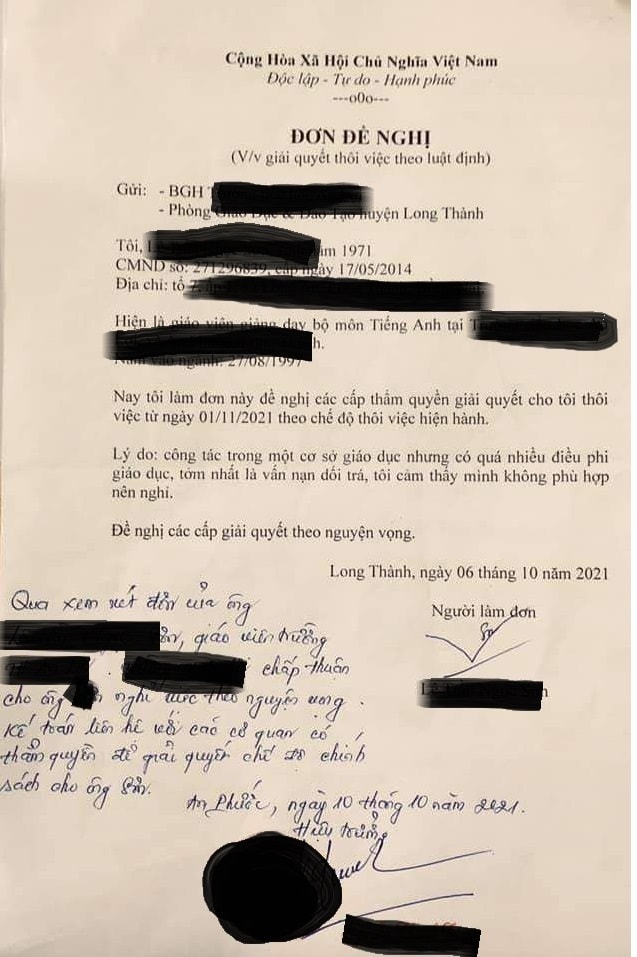 Cộng Hòa Xã Hội Chủ Nghĩa Việt Nam
Độc lập - Tự do - Hạnh phúc
---o0o---
ĐƠN ĐỀ NGHỊ
(V/v giải quyết thôi việc theo luật định)
Gửi: - BGH
- Phòng huyện Long Thành
Tôi, 1971
CMND số: ngày 17/05/2014
Địa chỉ: tổ
Hiện là giáo viên giảng dạy bộ môn Tiếng Anh tại
Nay tôi làm đơn này đề nghị các cấp thẩm quyền giải quyết cho tôi thôi
việc từ ngày 01/11/2021 theo chế độ thôi việc hiện hành.
Lý do: công tác trong một cơ sở giáo dục nhưng có quá nhiều điều phi
giáo dục, tởm nhất là vấn nạn dối trá, tôi cảm thấy mình không phù hợp
nên nghỉ.
Đề nghị các cấp giải quyết theo nguyện vọng.
Long Thành, ngày 06 tháng 10 năm 2021
Người làm đơn
Qua xem xét đơn của ông
, giáo viên trường
chấp thuận
cho ông nghỉ việc theo nguyện vọng.
Kế toán liên hệ với các cơ quan có
thẩm quyền để giải quyết chế độ chính
sách cho ông Sơn.
An Phước, ngày 10 tháng 10 năm 2021.
Hiệu trưởng